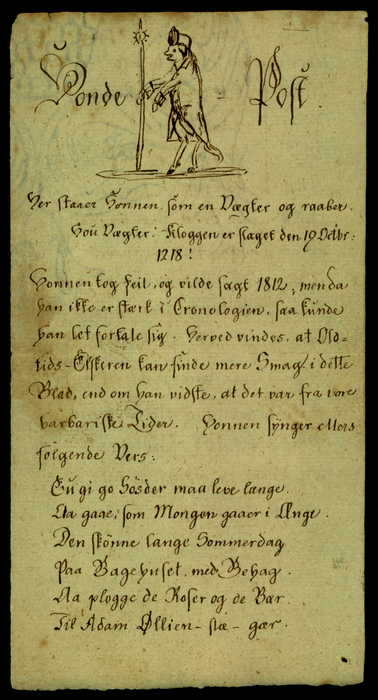 Hønde = Post.
Her staaer Hønnen, som en Vægter og raaber.
Hou Vægter! Kloggen er slaget den 19 Octbr:
1218!
Hønnen tog feil, og vilde sagt 1812, men da
han ikke er stærk i Cronologien, saa kunde
han let fortale sig. Herved vindes, at Old=
tids-Elskeren kan finde mere Smag i dette
Blad, end om han vidste, at det var fra vore
barbariske Tider. Hønnen synger ellers
følgende Vers:
Eu gi go Søsder maa leve længe.
Aa gaae, som Mongen gaaer i Ænge.
Den skönne lange Sommerdag
Paa Bagehuset, med Behag.
Aa plogge de Roser og de Bær.
Til Adam Øllien-stæ-gær.